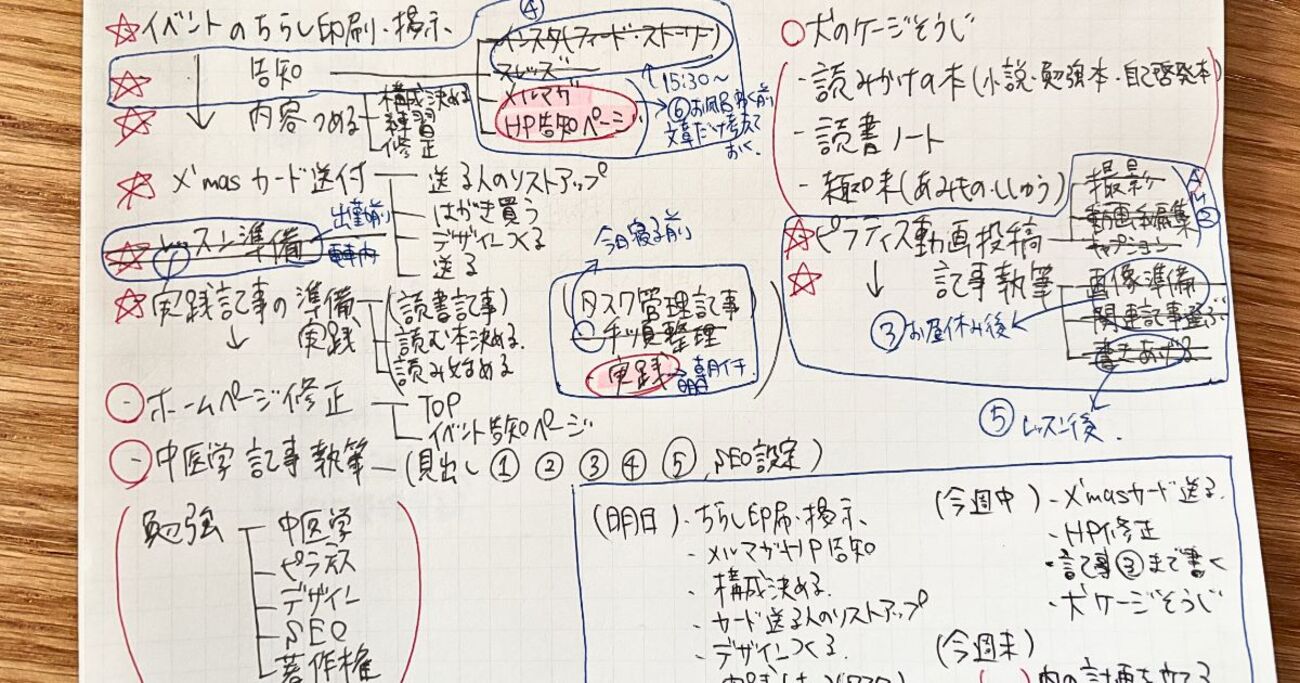 ④
☆イベントのちらし印刷・掲示
☆ 告知
インスタ(フィード・ストーリー)
スレッズ
メルマガ
HP告知ページ
15:30～
→⑥お風呂わく前
文章だけ考えて
おく.
☆ 内容つめる
構成決める
練習
修正
☆X'masカード送付
送る人のリストアップ
はがき買う
デザインつくる
送る
☆レッスン準備
①
出勤前
電車内
☆実践記事の準備
↓ 実践
(読書記事)
読む本決める.
読み始める
今日寝る前
タスク管理記事
手順整理
・実践
明日朝イチ
○-ホームページ修正
TOP
イベント告知ページ
○-中医学記事執筆―(見出し①②③④⑤, SEO設定)
勉強
中医学
ピラティス
デザイン
SEO
著作権
○犬のケージそうじ
・読みかけの本(小説・勉強本・自己啓発本)
・読書ノート
・趣味(あみもの・ししゅう)
☆ピラティス動画投稿
撮影
動画編集
キャプション
②
☆ ↓ 記事執筆
画像準備
関連記事選ぶ
書きあげる
③お昼休み後
⑤レッスン後.
(明日)・ちらし印刷・掲示
・メルマガ+HP告知
・構成決める.
・カード送る人のリストアップ
・デザインつくる.
(今週中)・X'masカード送る.
・HP修正
・記事③まで書く
・犬ケージそうじ
(今週末)
( )内の計画を立てる